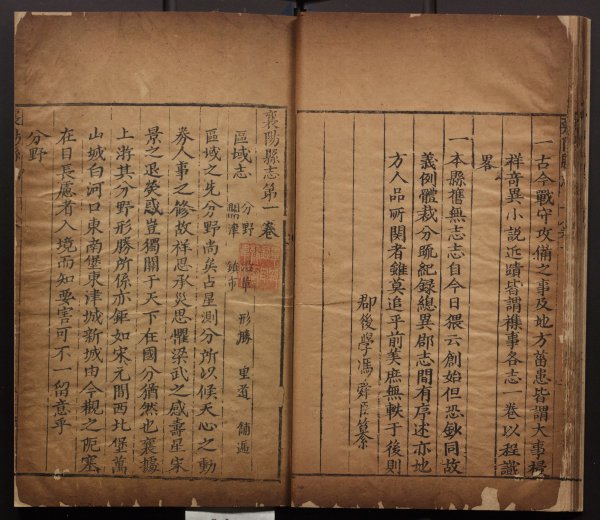 一古今戰守攻備之事及地方菑患皆謂大事禨
祥奇異小説近蹟皆謂襍事各志一卷以程識
畧
一本縣舊無志志自今日猥云創始但恐鈔同故
義例體裁分疏紀録總異郡志間有序述亦地
方人品所関者雖莫追乎前美庶無軼于後則
郡後學馮舜臣纂
襄陽縣志第一卷
區域志 分野 沿革 形勝 里道 鋪遞
關津 鎮市
區域之先分野尚矣占星測分所以候天心之動
券人事之修故祥思承災思懼梁武之感壽星宋
景之退熒惑豈獨關于天下在國分猶然也襄據
上游其分野形勝所係亦鉅如宋元間西北堡萬
山城白河口東南堡東津城新城由今觀之阨塞
在目長慮者入境而知要害可不一留意乎
分野